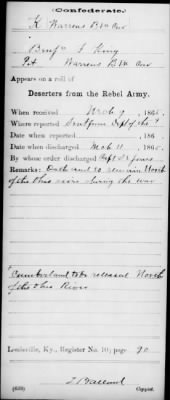 (Confederate.)
K Warrens Btn Cav
Benj. F. King
Pvt Warrens Btn Cav
Appears on a roll of
Deserters from the Rebel Army.
When received Mch 9, 1865.
Where reported Dept of the
Date when reported , 186 .
Date when discharged Mch 11, 1865.
By whose order discharged Capt S E Jones
Remarks: Oath and to remain North
of the Ohio river during the war
Cumberland to be released North
of the Ohio River
Louisville, Ky., Register No. 10; page 90
(639) Copyist.